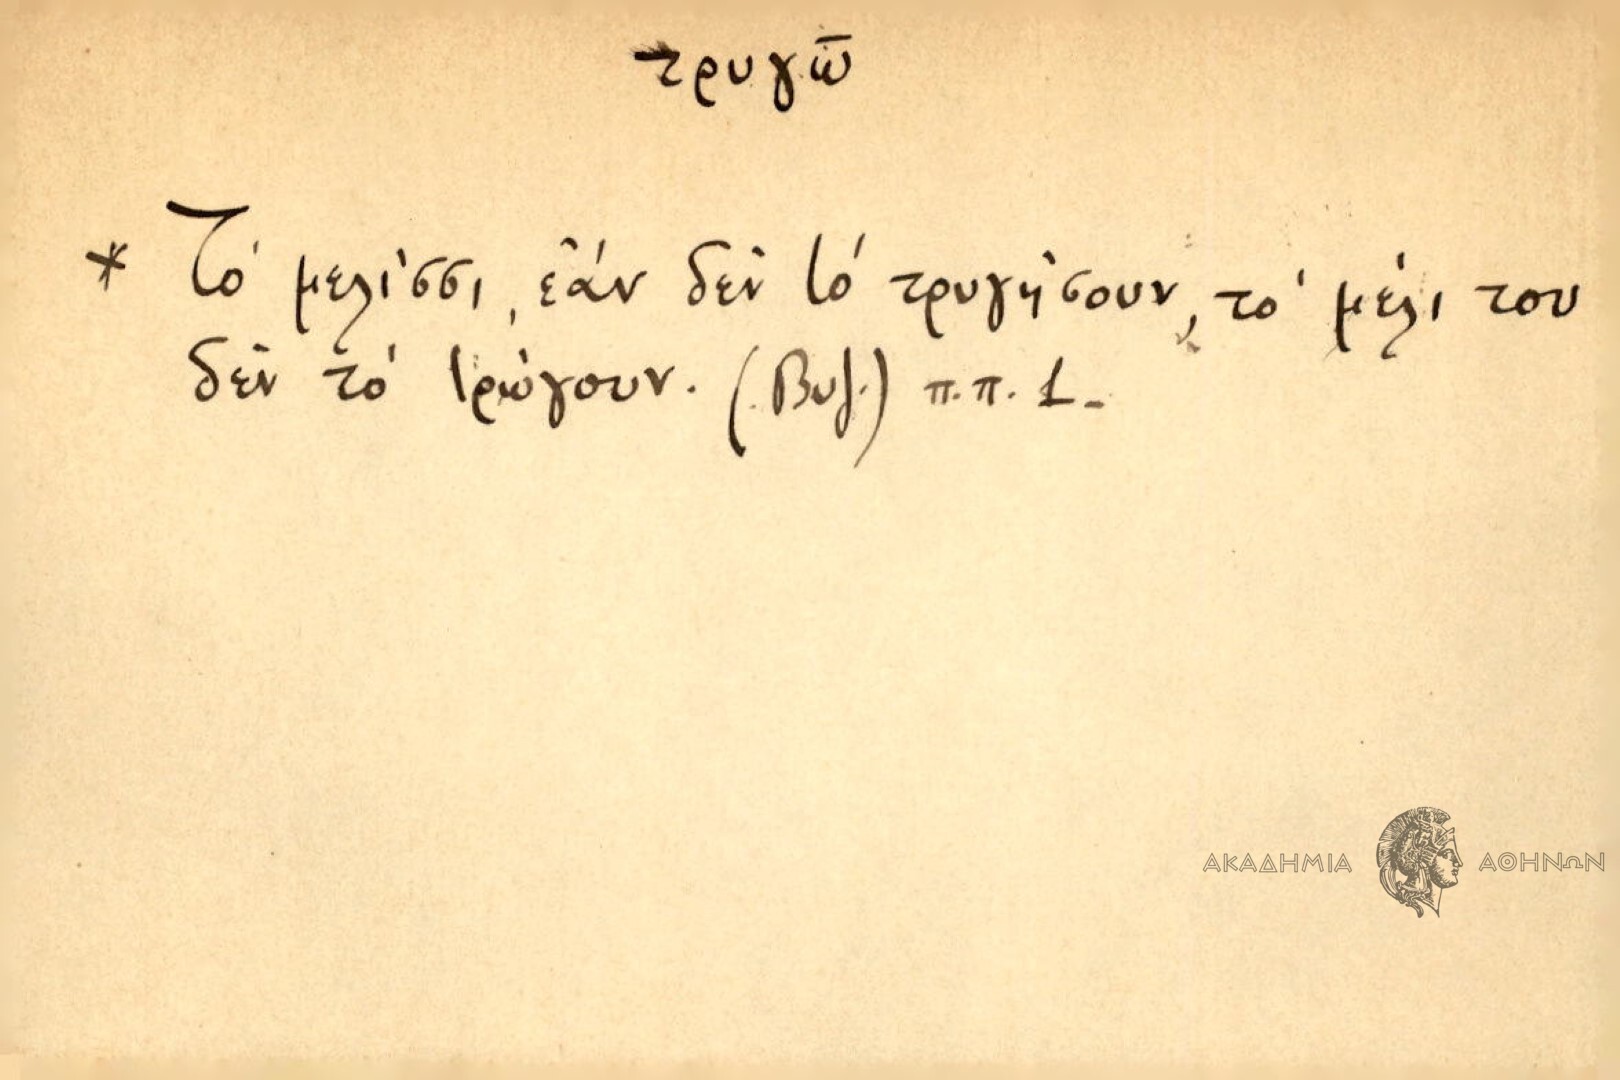 τρυγῶ
* Τὸ μελίσσι, ἐὰν δὲν τὸ τρυγήσουν, τὸ μέλι του
δὲν τὸ τρώγουν. (Βυζ.) π.π. 1-
ΑΚΑΔΗΜΙΑ ΑΘΗΝΩΝ